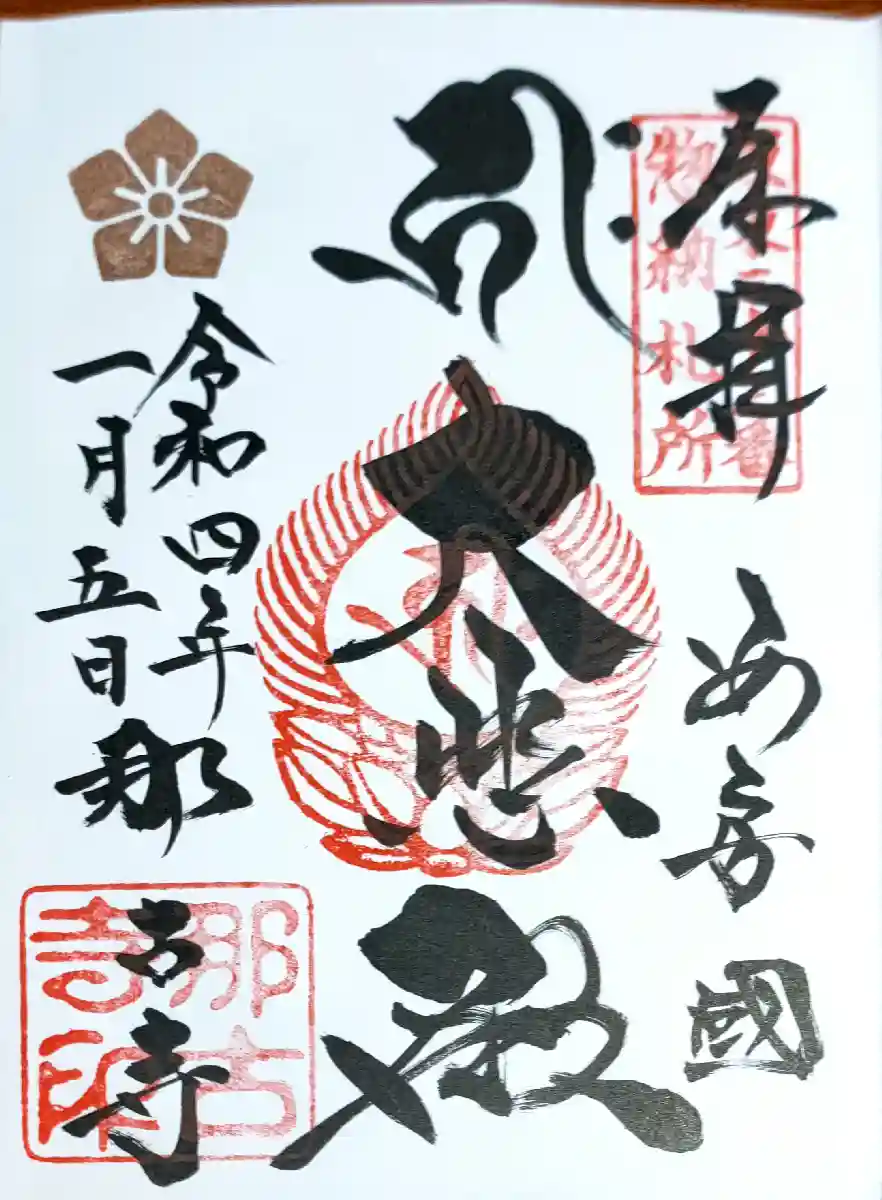 奉拝
坂東三十三番
惣納札所
安房國
大悲殿
令和四年
一月五日
那古寺
那古
寺印